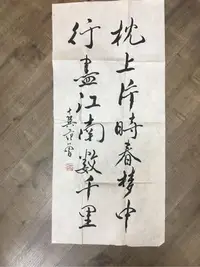 枕上片時春梦中
行盡江南数千里